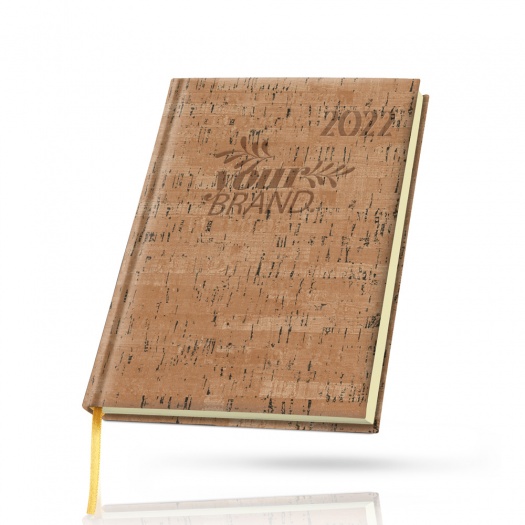 2022
your
BRAND